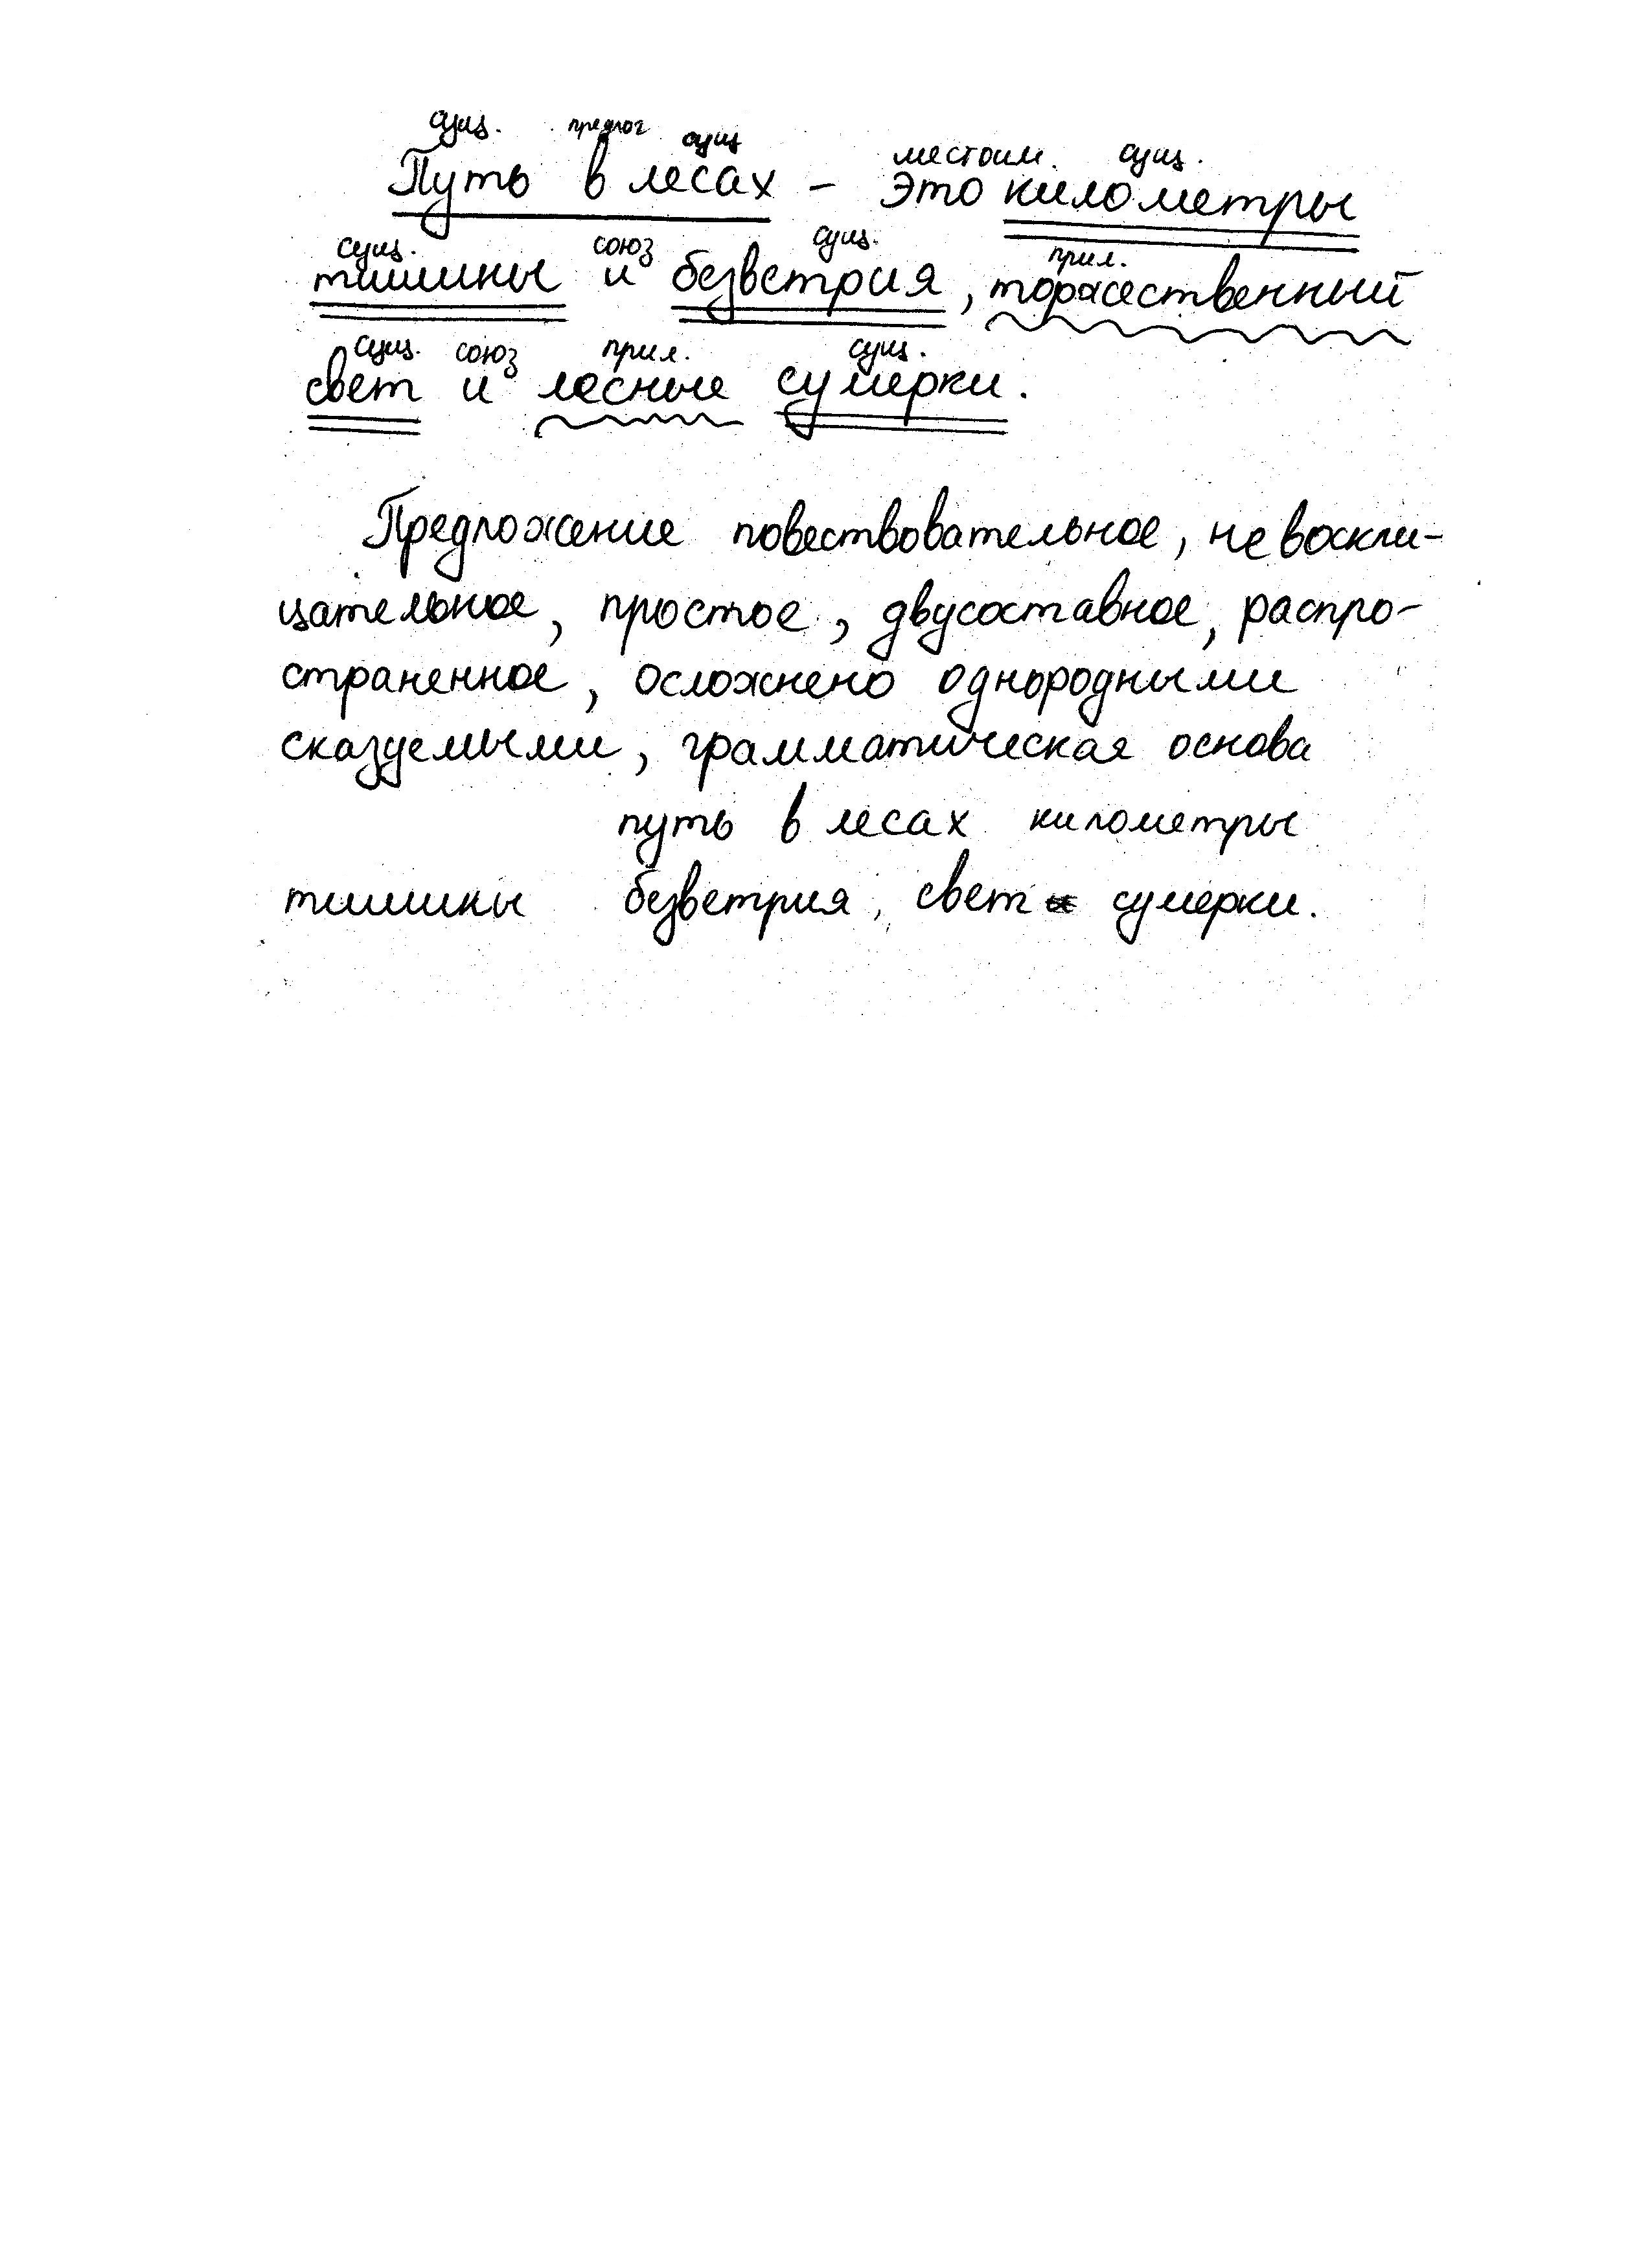 сущ. предлог сущ местоим. сущ.
Путь в лесах – это километры
сущ. союз сущ. прил.
тишины и безветрия, торжественный
сущ. союз прил. сущ.
свет и лесные сумерки.
Предложение повествовательное, не воскли-
цательное, простое, двусоставное, распро-
страненное, осложнено однородными
сказуемыми, грамматическая основа
путь в лесах километры
тишины безветрия, свет сумерки.